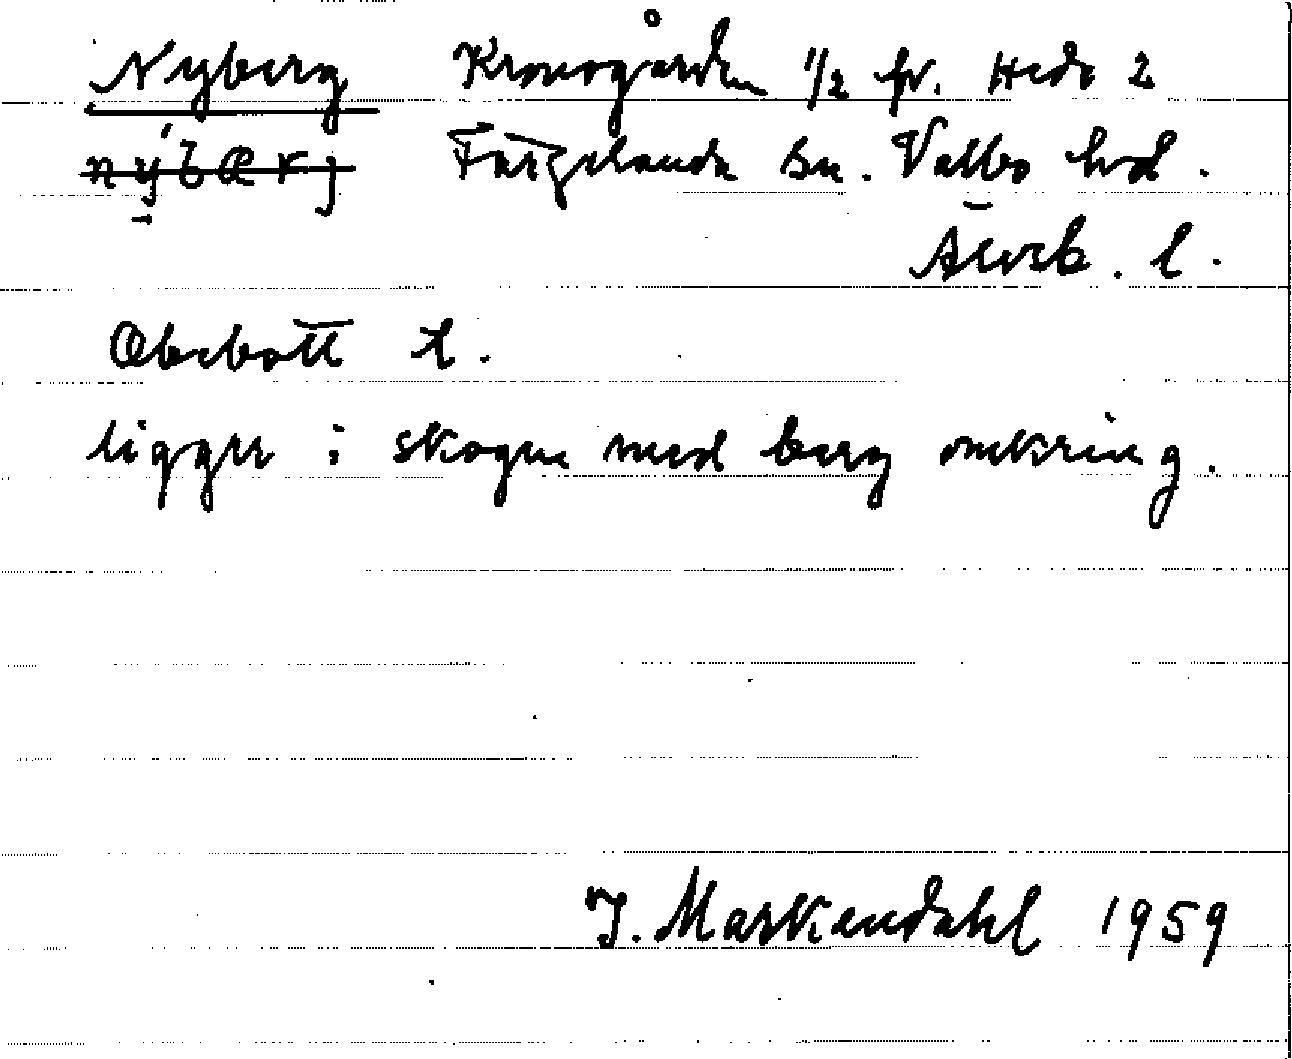 Nyberg Kronogården 1/2 fr. Hede 2
nýbærj Färgelanda sn. Valbo hd.
Älvsb. l.
Obebott t.
ligger i skogen med berg omkring.
J. Markendahl 1959